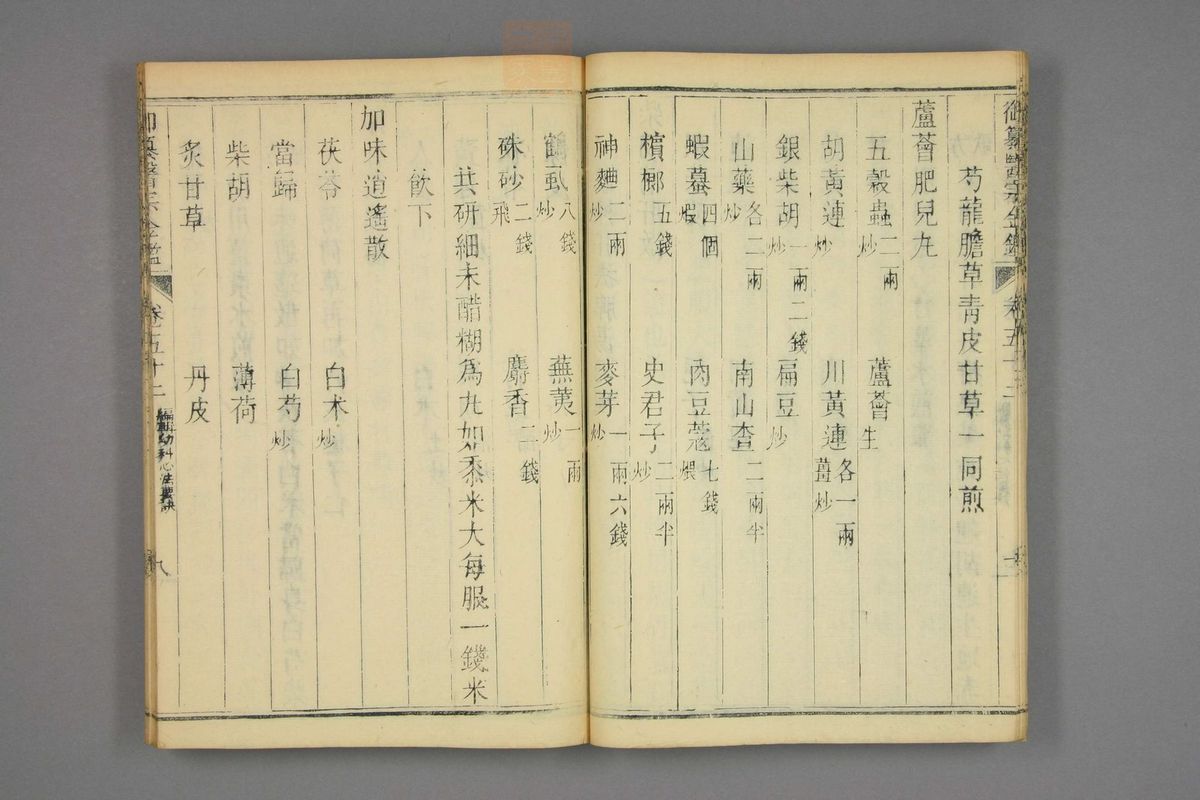 御纂醫宗金鑑 卷五十二
芍龍膽草青皮甘草一同煎
蘆薈肥兒丸
五穀蟲二兩炒 蘆薈生
胡黃連炒 川黃連各一兩薑炒
銀柴胡一兩二錢炒 扁豆炒
山藥各二兩炒 南山查二兩半
蝦蟇四個煆 肉豆蔻七錢煨
檳榔五錢 史君子二兩半炒
神麯二兩炒 麥芽一兩六錢炒
鶴虱八錢炒 蕪荑一兩炒
硃砂二錢飛 麝香二錢
共研細末醋糊爲丸如黍米大每服一錢米
飲下
加味逍遙散
茯苓 白朮炒
當歸 白芍炒
柴胡 薄荷
炙甘草 丹皮
御纂醫宗金鑑 卷五十二 編輯幼科心法要訣 八